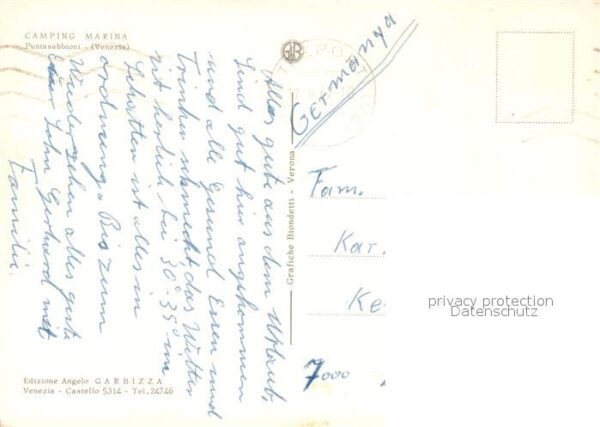 CAMPING MARINA
Puntasabbioni - (Venezia)
Alles gute aus dem Uhlaub,
Sind gut hier angekommen
und alle Gesund Essen und
Trinken schmeckt, das Wetter
ist herlich bei 30°-35° im
Schatten ist alles in
ordnung. Bis zum
Wiedersehen alles gute
Euer Sohn Gerhard mit
Familie
Edizione Angelo GARBIZZA
Venezia - Castello 5314 - Tel. 24746
Grafiche Biondetti - Verona
GB
POST
Germanya
Fam.
Kar.
Ke
7000
privacy protection
Datenschutz